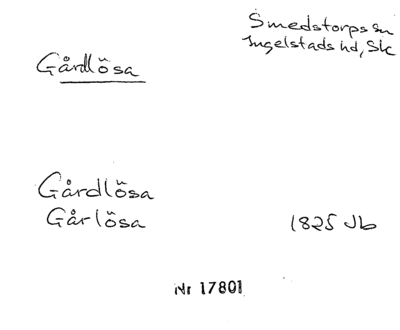 Smedstorps sn
Ingelstads hd, Sk
Gårdlösa
Gårdlösa
Gårlösa
1825 Jb
Nr 17801